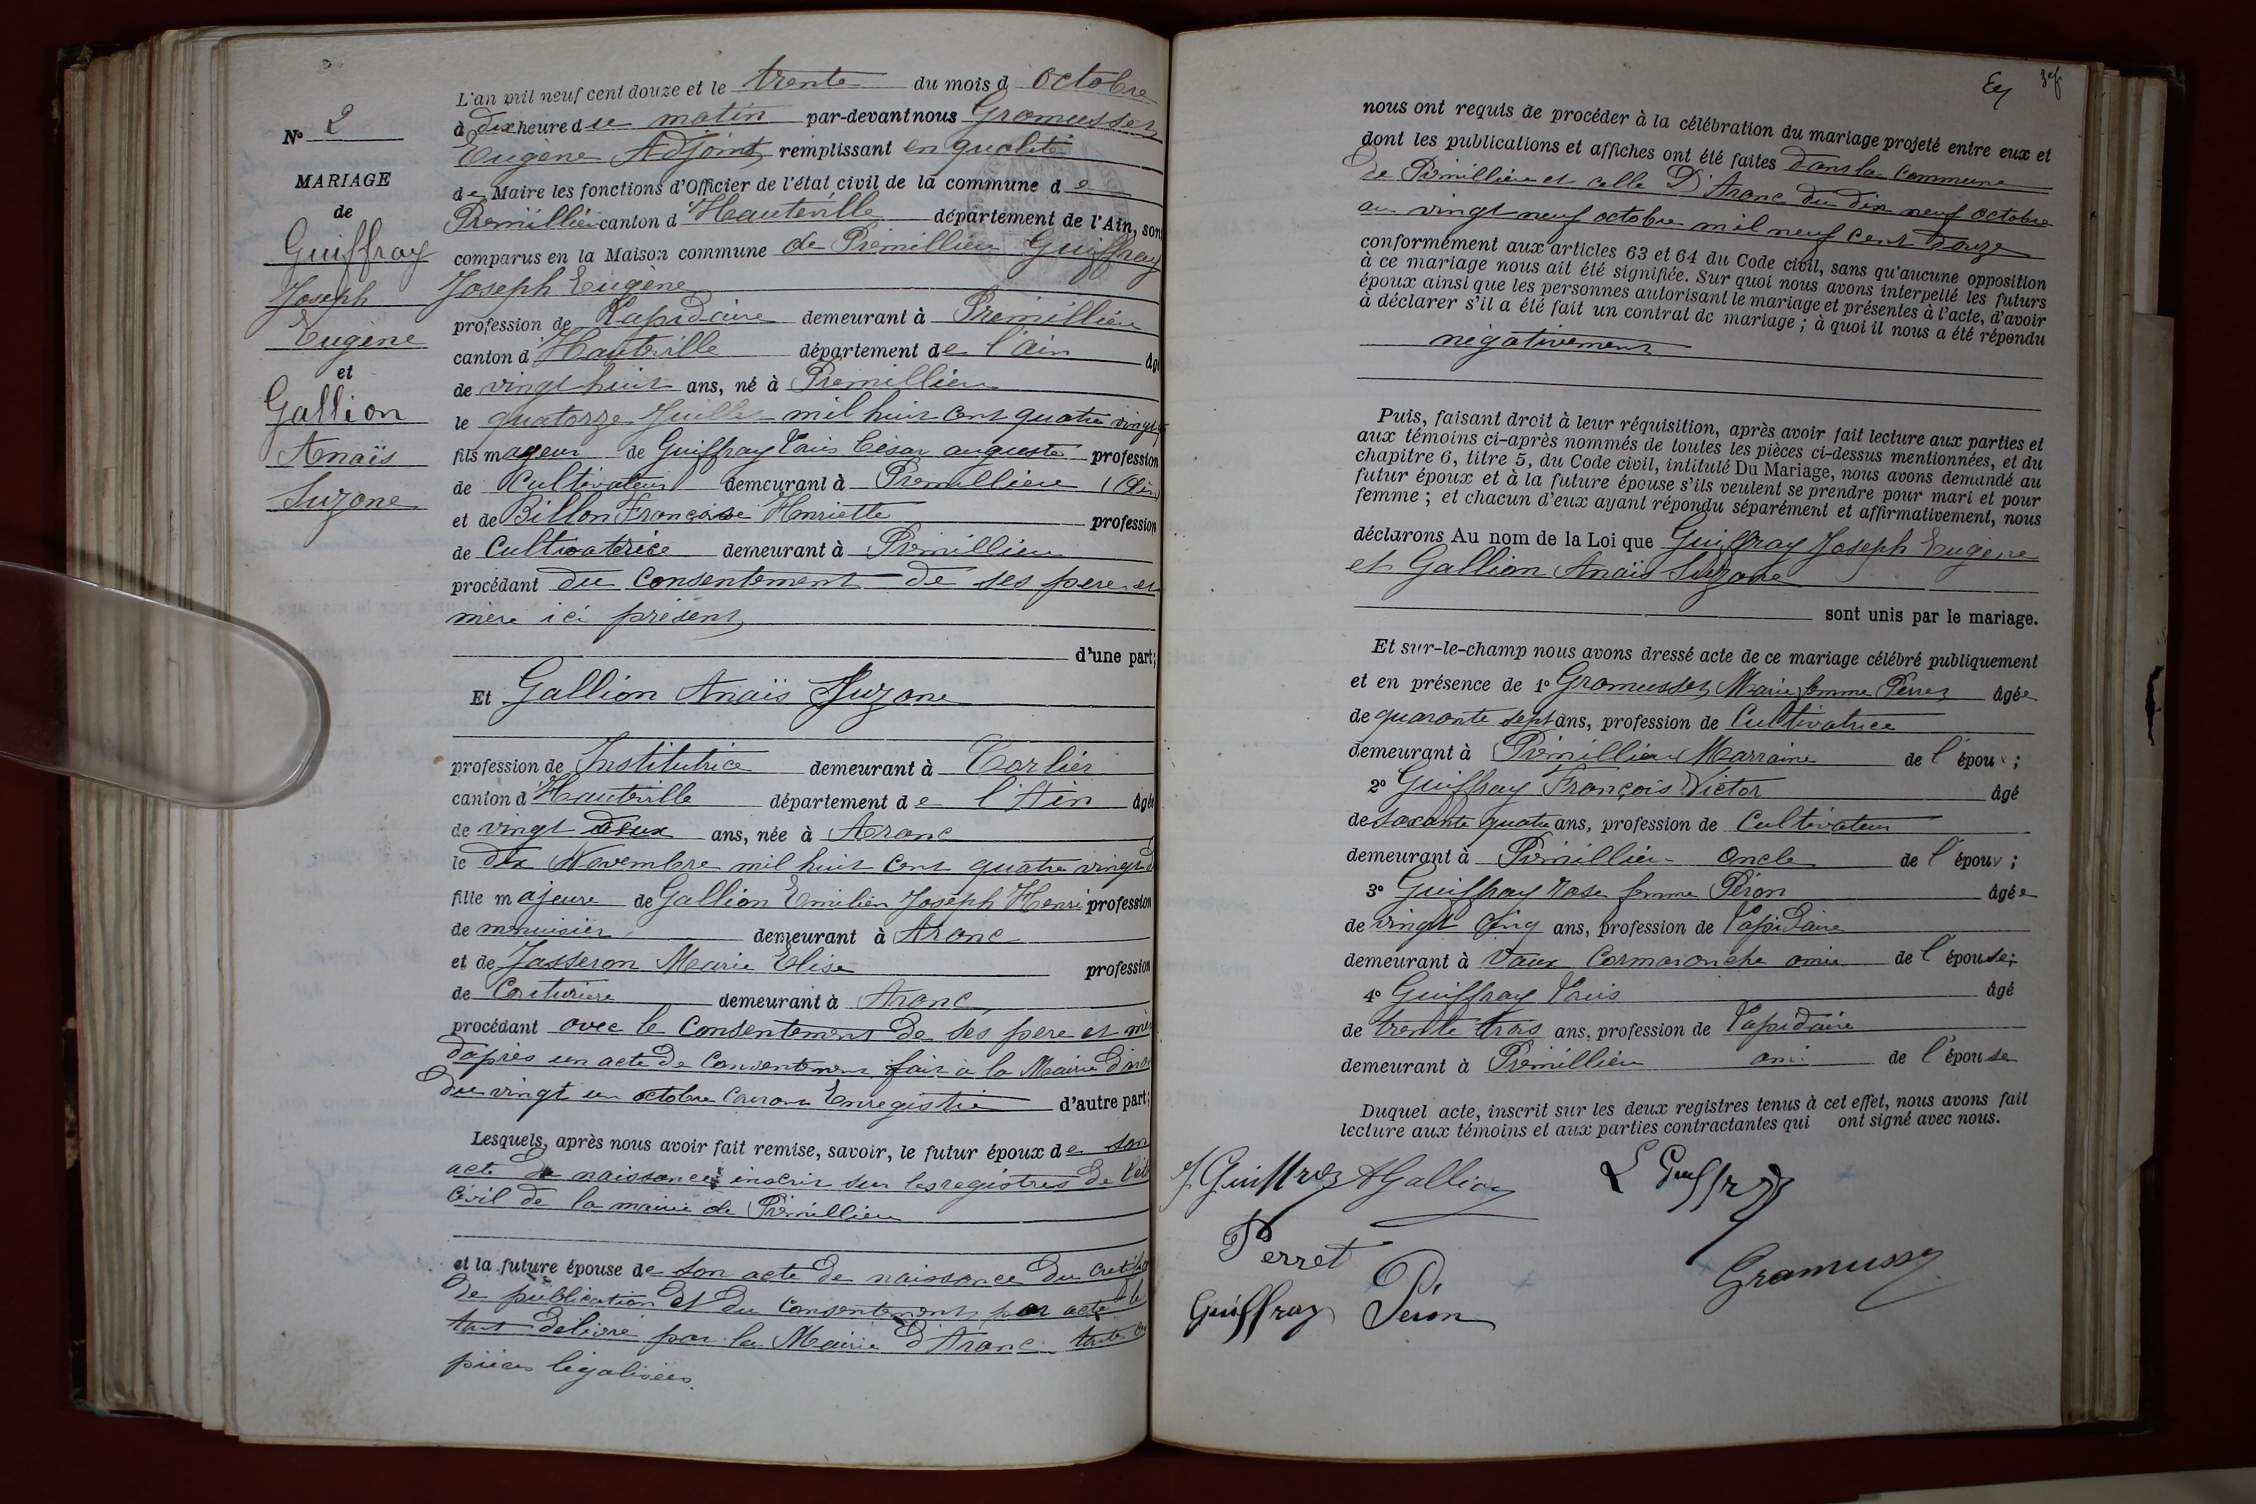 N° 2
MARIAGE
de
Guiffray
Joseph
Eugène
et
Gallion
Anaïs
Suzone
L'an mil neuf cent douze et le trente du mois d Octobre
à dix heure du matin par-devant nous Gramusset
Eugène Adjoint remplissant en qualité
de Maire les fonctions d'Officier de l'état civil de la commune de
Prémillieu canton d'Hauteville département de l'Ain, sont
comparus en la Maison commune de Prémillieu Guiffray
Joseph Eugène
profession de Lapidaire demeurant à Prémillieu
canton d'Hauteville département de l'ain âgé
de vingt huit ans, né à Prémillieu
le quatorze Juillet mil huit cent quatre vingt
fils majeur de Guiffray Louis César auguste profession
de Cultivateur demeurant à Premillieu (Ain)
et de Billon Françoise Henriette profession
de Cultivatrice demeurant à Prémillieu
procédant du Consentement de ses pere et
mère ici présent
d'une part;
Et Gallion Anaïs Suzone
profession de Institutrice demeurant à Corlier
canton d'Hauteville département de l'Ain âgée
de vingt deux ans, née à Aranc
le dix Novembre mil huit cent quatre vingt
fille majeure de Gallion Emilien Joseph Henri profession
de menuisier demeurant à Aranc
et de Jasseron Marie Elise profession
de Couturière demeurant à Aranc
procédant avec le Consentement de ses pere et mère
d'après un acte de Consentement fait à la Mairie d'aranc
du vingt un octobre Courant Enregistré d'autre part;
Lesquels, après nous avoir fait remise, savoir, le futur époux de son
acte de naissance inscrit sur les registres de l'état
Civil de la mairie de Prémillieu
et la future épouse de son acte de naissance du certificat
de publication et du Consentement par acte le
tout délivré par la Mairie d'Aranc
pièces légalisées.
nous ont requis de procéder à la célébration du mariage projeté entre eux et
dont les publications et affiches ont été faites dans la Commune
de Prémillieu et celle D'Aranc du dix neuf octobre
au vingt neuf octobre mil neuf cent douze
conformément aux articles 63 et 64 du Code civil, sans qu'aucune opposition
à ce mariage nous ait été signifiée. Sur quoi nous avons interpellé les futurs
époux ainsi que les personnes autorisant le mariage et présentes à l'acte, d'avoir
à déclarer s'il a été fait un contrat de mariage; à quoi il nous a été répondu
négativement
Puis, faisant droit à leur réquisition, après avoir fait lecture aux parties et
aux témoins ci-après nommés de toutes les pièces ci-dessus mentionnées, et du
chapitre 6, titre 5, du Code civil, intitulé Du Mariage, nous avons demandé au
futur époux et à la future épouse s'ils veulent se prendre pour mari et pour
femme; et chacun d'eux ayant répondu séparément et affirmativement, nous
déclarons Au nom de la Loi que Guiffray Joseph Eugène
et Gallion Anaïs Suzone
sont unis par le mariage.
Et sur-le-champ nous avons dressé acte de ce mariage célébré publiquement
et en présence de 1° Gramusset Marie femme Perret âgée
de quarante sept ans, profession de Cultivatrice
demeurant à Prémillieu Marraine de l'époux;
2° Guiffray François Victor âgé
de soixante quatre ans, profession de Cultivateur
demeurant à Prémillieu Oncle de l'époux;
3° Guiffray Rose femme Péron âgée
de vingt Cinq ans, profession de Lapidaire
demeurant à Vaux Cormaronche amie de l'épouse;
4° Guiffray Louis âgé
de trente trois ans, profession de Lapidaire
demeurant à Prémillieu ami de l'épouse
Duquel acte, inscrit sur les deux registres tenus à cet effet, nous avons fait
lecture aux témoins et aux parties contractantes qui ont signé avec nous.
J. Guiffray AGallion L Guiffray
Perret
Gramusset
Guiffray Péron